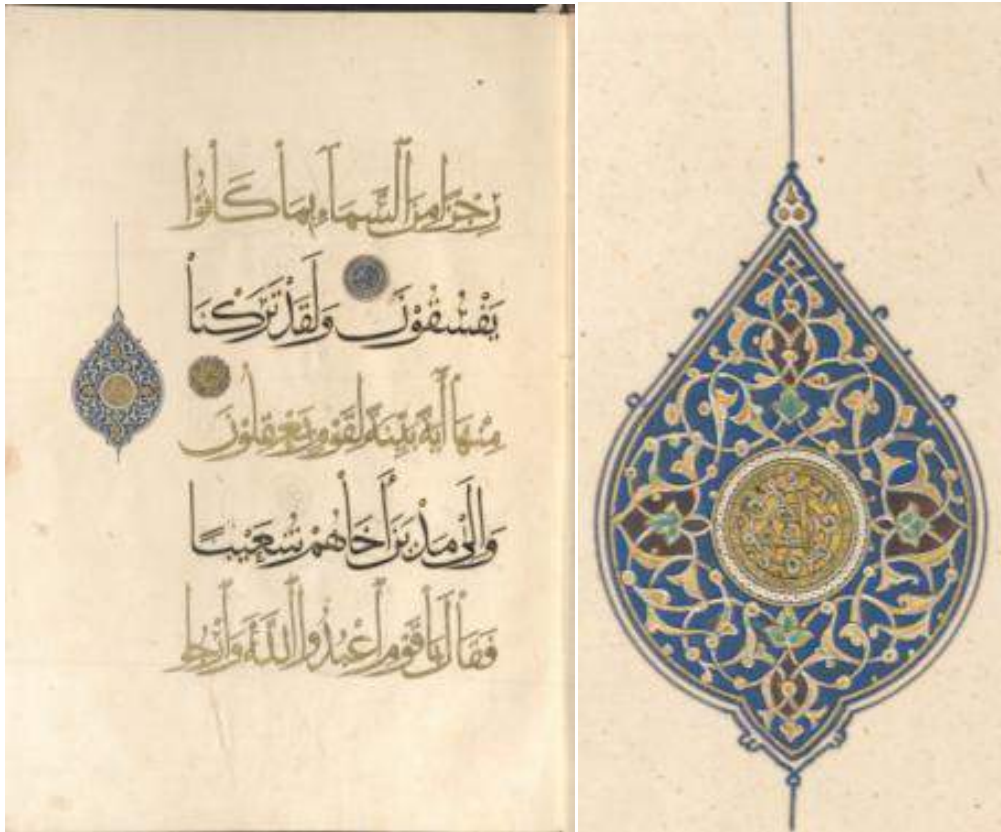 رِجْزًا مِنَ السَّمَاءِ بِمَا كَانُوا
يَفْسُقُوْنَ وَلَقَدْ تَرَكْنَا
مِنْهَا آيَةً بَيِّنَةً لِقَوْمٍ يَعْقِلُوْنَ
وَإِلَىٰ مَدْيَنَ أَخَاهُمْ شُعَيْبًا
فَقَالَ يَا قَوْمِ اعْبُدُوا اللَّهَ وَارْجُوا